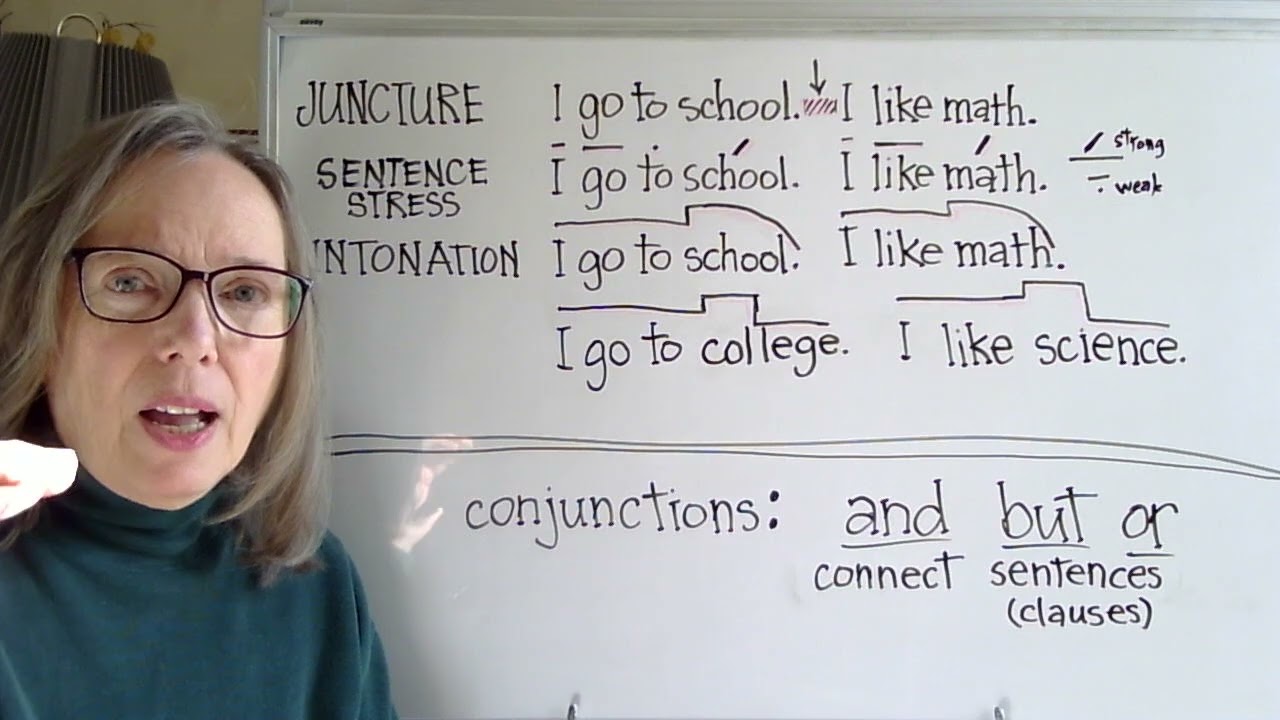 JUNCTURE I go to school. I like math.
SENTENCE STRESS I go to school. I like math. strong weak
INTONATION I go to school. I like math.
I go to college. I like science.
conjunctions: and but or
connect sentences
(clauses)